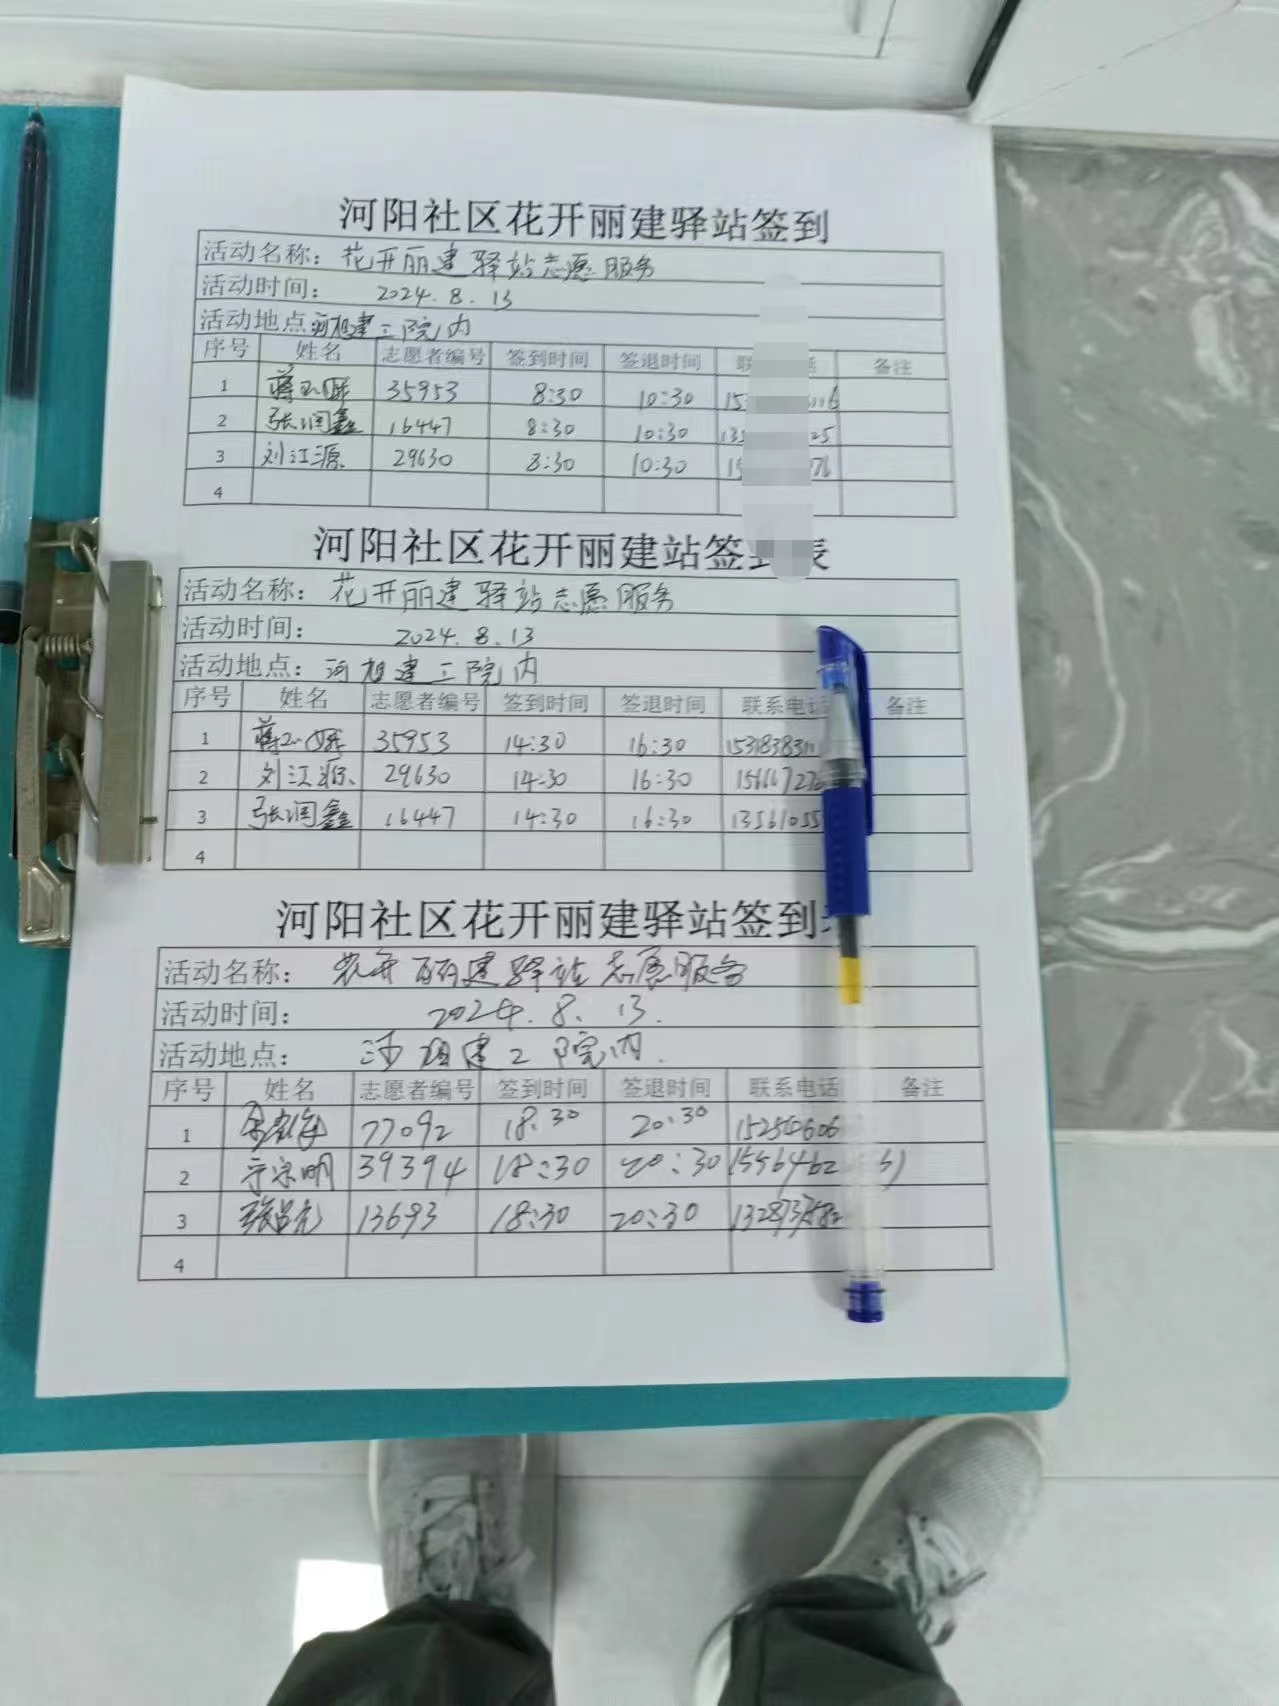 河阳社区花开丽建驿站签到
活动名称：花开丽建驿站志愿服务
活动时间： 2024.8.13
活动地点 河旭建工院内
序号 姓名 志愿者编号 签到时间 签退时间 联 话 备注
1 35953 8:30 10:30 15
2 张润鑫 16447 8:30 10:30 13 25
3 刘江源 29630 8:30 10:30 15 76
4
河阳社区花开丽建站签 表
活动名称：花开丽建驿站志愿服务
活动时间： 2024.8.13
活动地点：河旭建工院内
序号 姓名 志愿者编号 签到时间 签退时间 联系电话 备注
1 35953 14:30 16:30
2 刘江源 29630 14:30 16:30
3 张润鑫 16447 14:30 16:30 1356105
4
河阳社区花开丽建驿站签到
活动名称：花开丽建驿站志愿服务
活动时间： 2024.8.13.
活动地点： 河旭建工院内.
序号 姓名 志愿者编号 签到时间 签退时间 联系电话 备注
1 77092 18:30 20:30
2 39394 18:30 20:30
3 13693 18:30 20:30
4